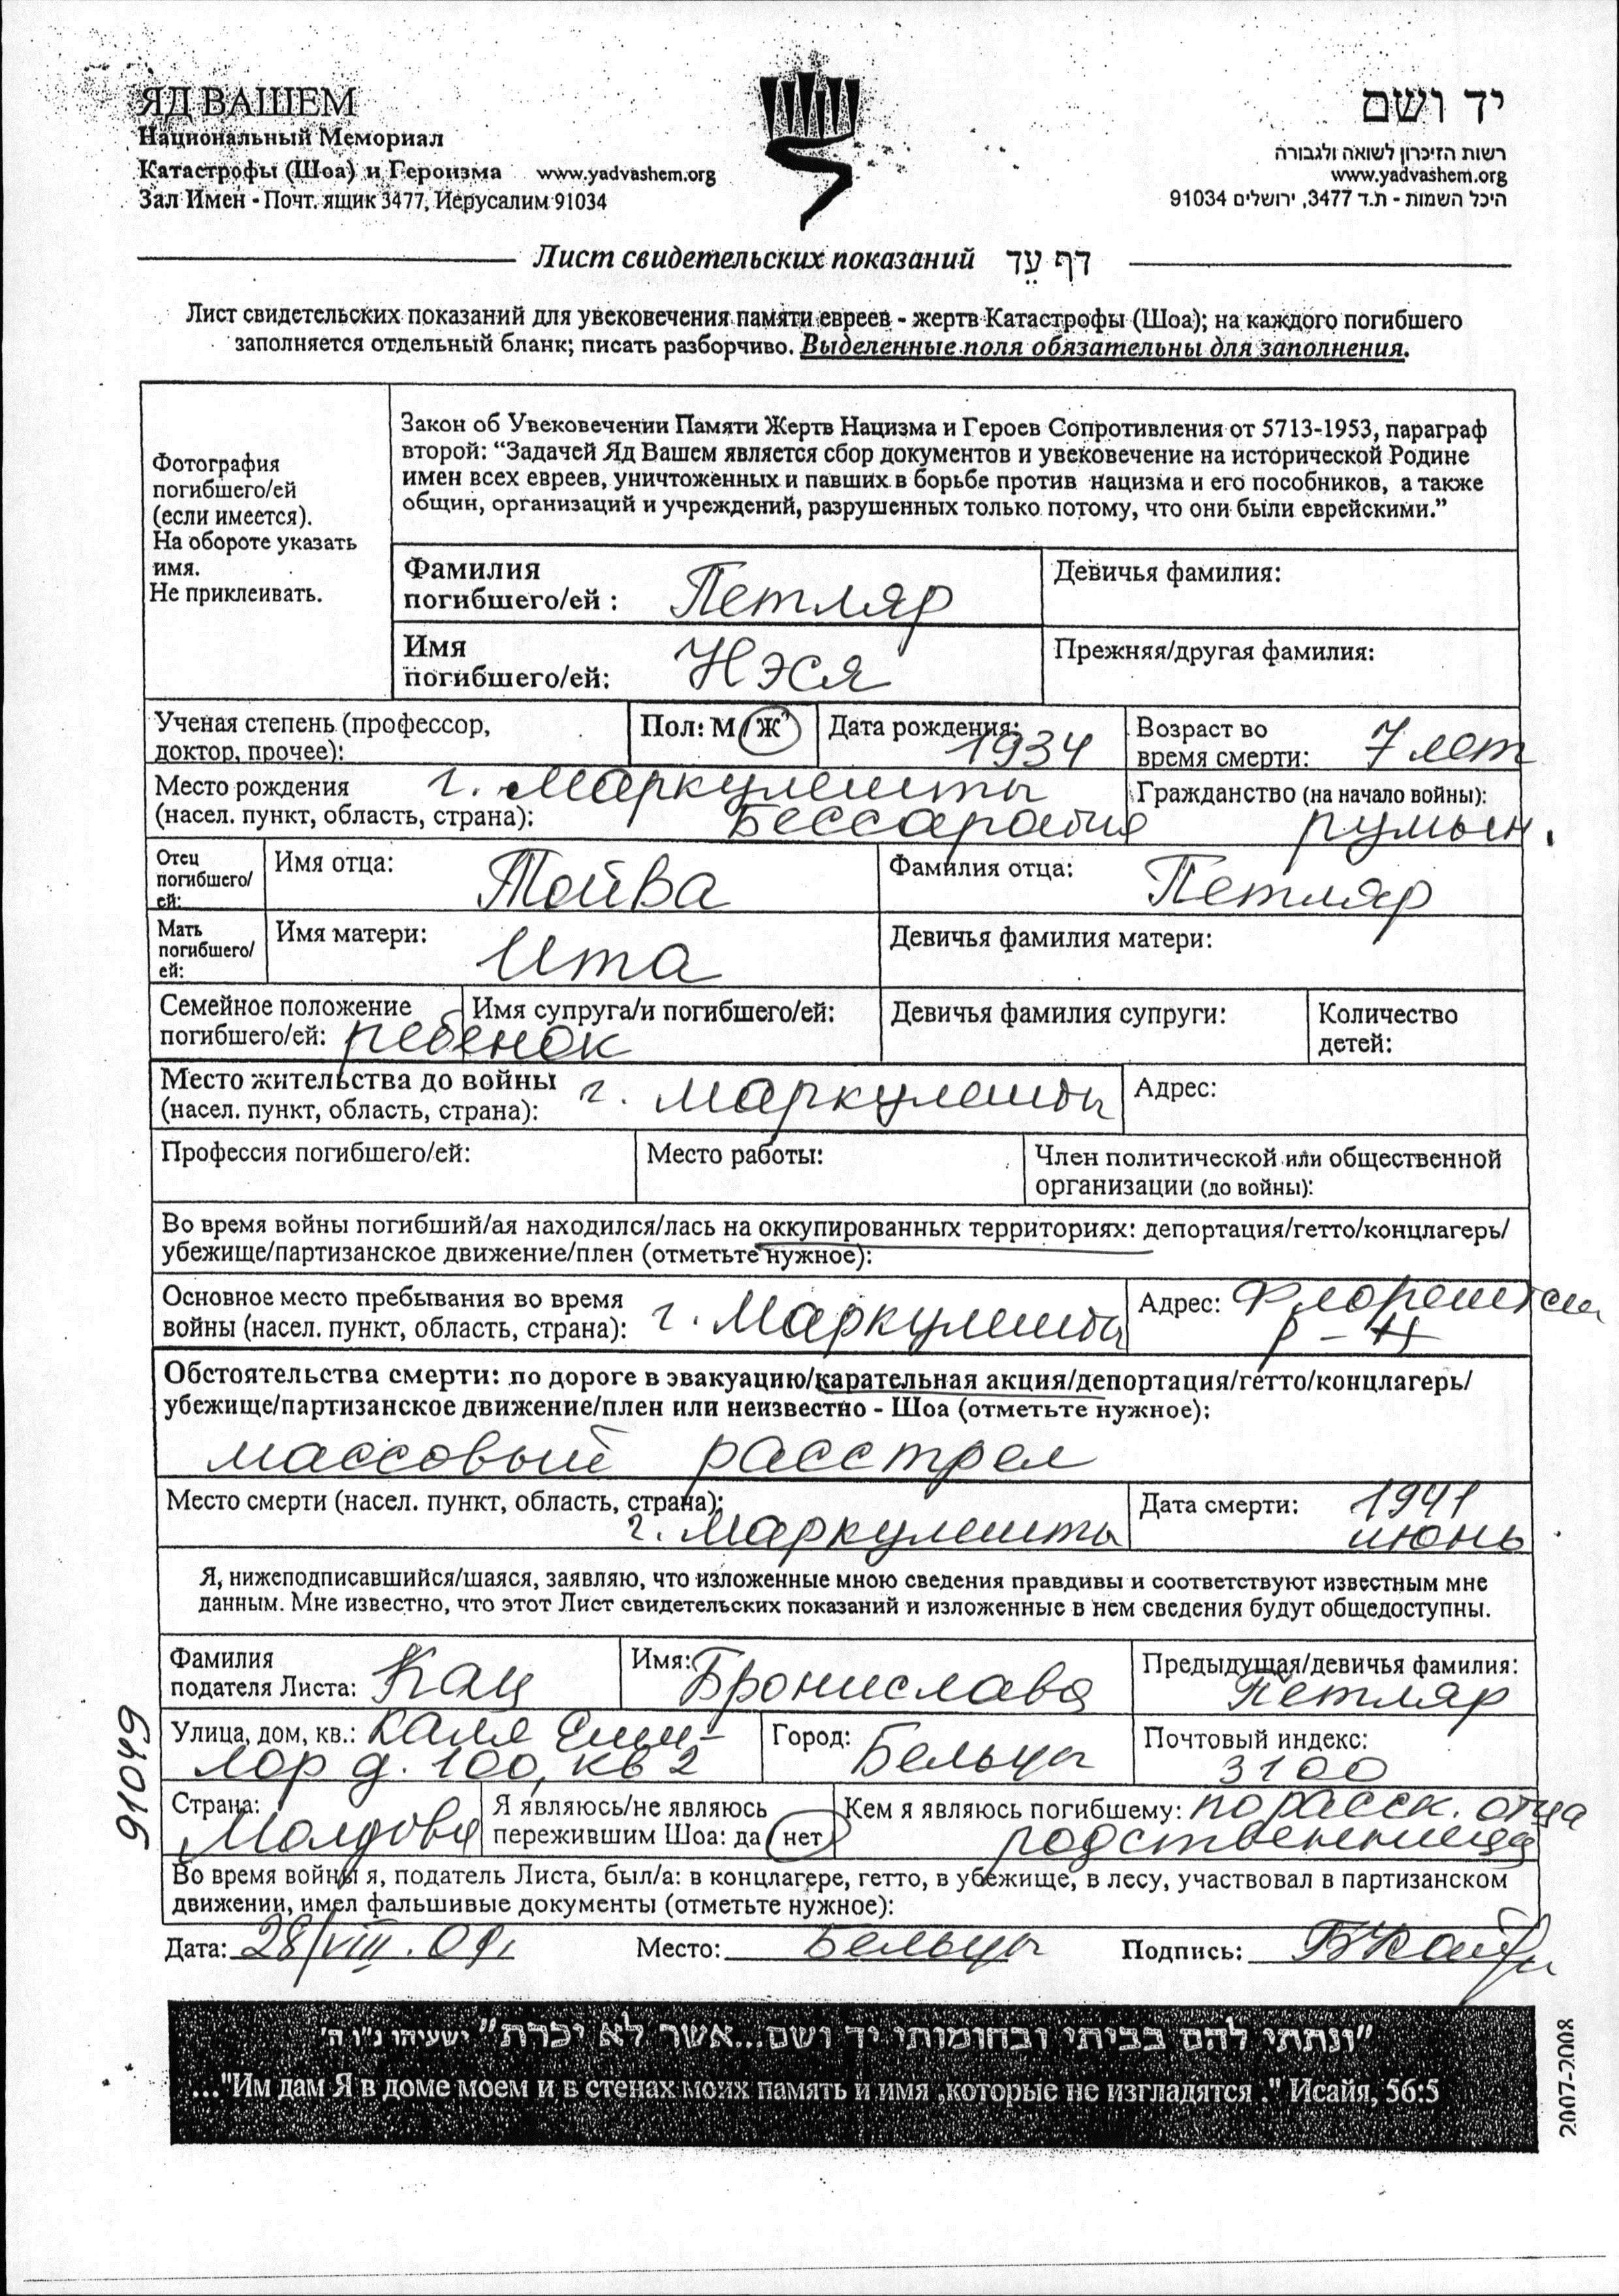 ЯД ВАШЕМ
Национальный Мемориал
Катастрофы (Шоа) и Героизма www.yadvashem.org
Зал Имен - Почт. ящик 3477, Иерусалим 91034
יד ושם
רשות הזיכרון לשואה ולגבורה
www.yadvashem.org
היכל השמות - ת.ד 3477, ירושלים 91034
Лист свидетельских показаний דף עֵד
Лист свидетельских показаний для увековечения памяти евреев - жертв Катастрофы (Шоа); на каждого погибшего
заполняется отдельный бланк; писать разборчиво. Выделенные поля обязательны для заполнения.
Фотография
погибшего/ей
(если имеется).
На обороте указать
имя.
Не приклеивать.
Закон об Увековечении Памяти Жертв Нацизма и Героев Сопротивления от 5713-1953, параграф
второй: “Задачей Яд Вашем является сбор документов и увековечение на исторической Родине
имен всех евреев, уничтоженных и павших в борьбе против нацизма и его пособников, а также
общин, организаций и учреждений, разрушенных только потому, что они были еврейскими.”
Фамилия
погибшего/ей : Петляр
Девичья фамилия:
Имя
погибшего/ей: Нэся
Прежняя/другая фамилия:
Ученая степень (профессор,
доктор, прочее):
Пол: М/Ж
Дата рождения: 1934
Возраст во
время смерти: 7 лет
Место рождения г. Маркулешты
(насел. пункт, область, страна): Бессарабия
Гражданство (на начало войны):
румын.
Отец
погибшего/
ей:
Имя отца: Тойва
Фамилия отца: Петляр
Мать
погибшего/
ей:
Имя матери: Ита
Девичья фамилия матери:
Семейное положение
погибшего/ей: ребенок
Имя супруга/и погибшего/ей:
Девичья фамилия супруги:
Количество
детей:
Место жительства до войны
(насел. пункт, область, страна): г. Маркулешты
Адрес:
Профессия погибшего/ей:
Место работы:
Член политической или общественной
организации (до войны):
Во время войны погибший/ая находился/лась на оккупированных территориях: депортация/гетто/концлагерь/
убежище/партизанское движение/плен (отметьте нужное):
Основное место пребывания во время
войны (насел. пункт, область, страна): г. Маркулешты
Адрес:
р-н
Обстоятельства смерти: по дороге в эвакуацию/карательная акция/депортация/гетто/концлагерь/
убежище/партизанское движение/плен или неизвестно - Шоа (отметьте нужное):
массовый расстрел
Место смерти (насел. пункт, область, страна):
г. Маркулешты
Дата смерти: 1941
июнь
Я, нижеподписавшийся/шаяся, заявляю, что изложенные мною сведения правдивы и соответствуют известным мне
данным. Мне известно, что этот Лист свидетельских показаний и изложенные в нем сведения будут общедоступны.
Фамилия
подателя Листа: Кац
Имя: Бронислава
Предыдущая/девичья фамилия:
Петляр
Улица, дом, кв.: каля Еши-
лор д. 100, кв 2
Город: Бельцы
Почтовый индекс:
3100
Страна:
Молдова
Я являюсь/не являюсь
пережившим Шоа: да/нет
Кем я являюсь погибшему: по расск. отца
родственница
Во время войны я, податель Листа, был/а: в концлагере, гетто, в убежище, в лесу, участвовал в партизанском
движении, имел фальшивые документы (отметьте нужное):
Дата: 28/VIII.09г. Место: Бельцы Подпись:
91049
"ונתתי להם בביתי ובחומותי יד ושם...אשר לא יכרת" ישעיהו נ"ו ה'
..."Им дам Я в доме моем и в стенах моих память и имя ,которые не изгладятся ." Исайя, 56:5
2007-2008